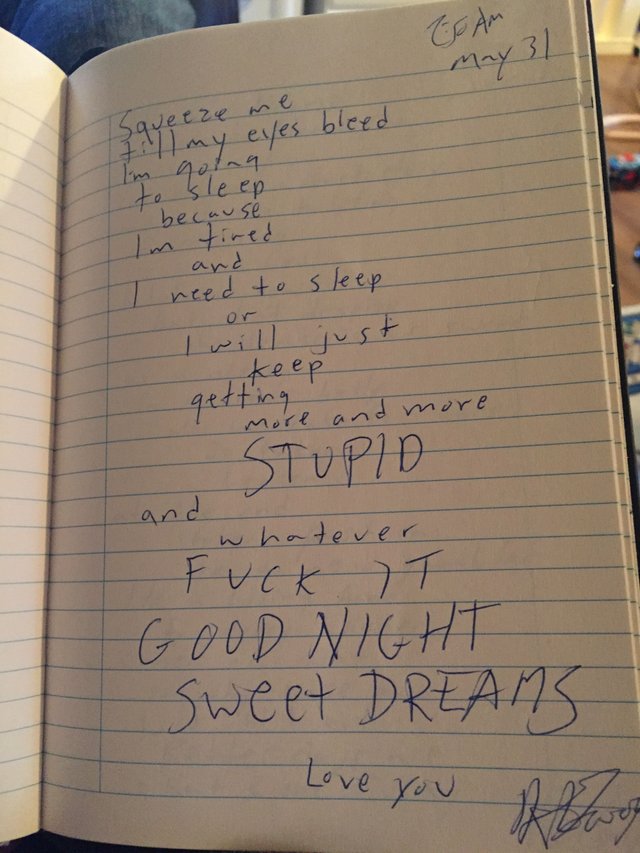 Am
May 31
Squeeze me
till my eyes bleed
I'm going
to sleep
because
I'm tired
and
I need to sleep
or
I will just
keep
getting
more and more
STUPID
and
whatever
FUCK IT
GOOD NIGHT
sweet DREAMS
Love you